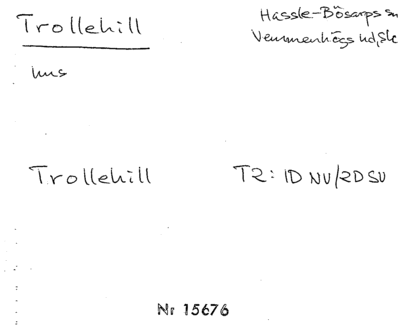 Trollehill
Hassle-Bösarps sn
Vemmenhögs hd, Sk
hus
Trollehill
T2: 1D NV/2D SV
Nr 15676